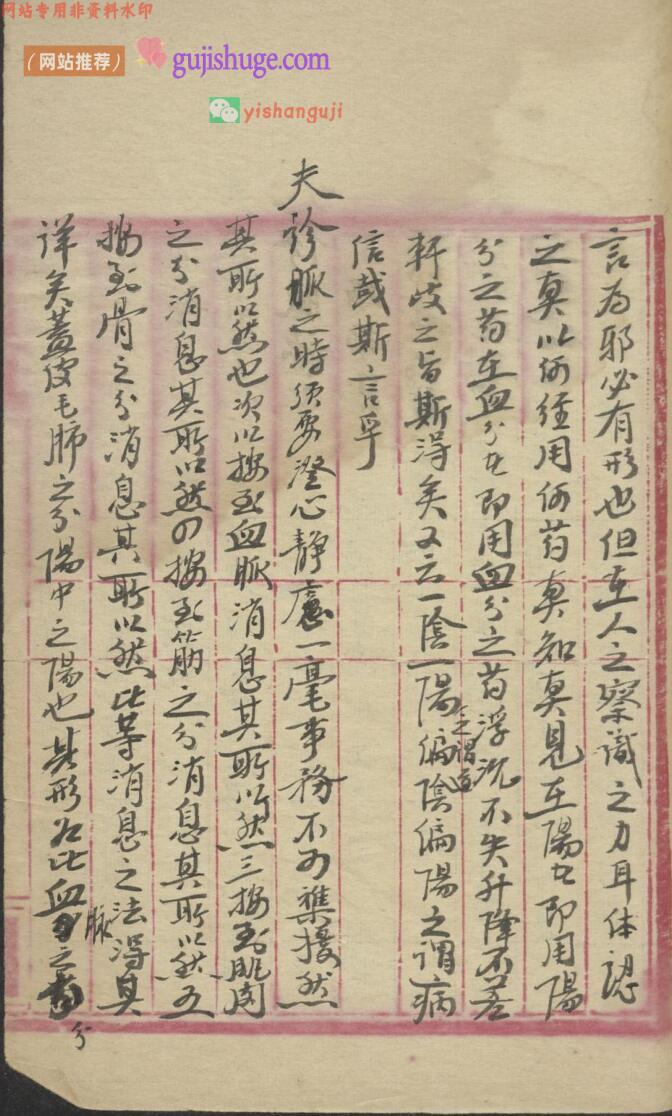 网站专用非资料水印
（网站推荐）
gujishuge.com
yishanguji
言为邪必有形也但在人之察識之力耳体認
之真以何经用何药真知真見在陽分即用陽
分之药在血分即用血分之药浮沉不失升降不差
軒岐之旨斯得矣又云一陰一陽之謂道偏陰偏陽之谓病
信哉斯言乎
夫診脈之時须要澄心静慮一毫事務不可襍擾然
其所以然也次以按至血脈消息其所以然三按至肌肉
之分消息其所以然四按至筋之分消息其所以然五
按至骨之分消息其所以然比等消息之法得其
详矣蓋皮毛肺之分陽中之陽也其形为比血脈之
分